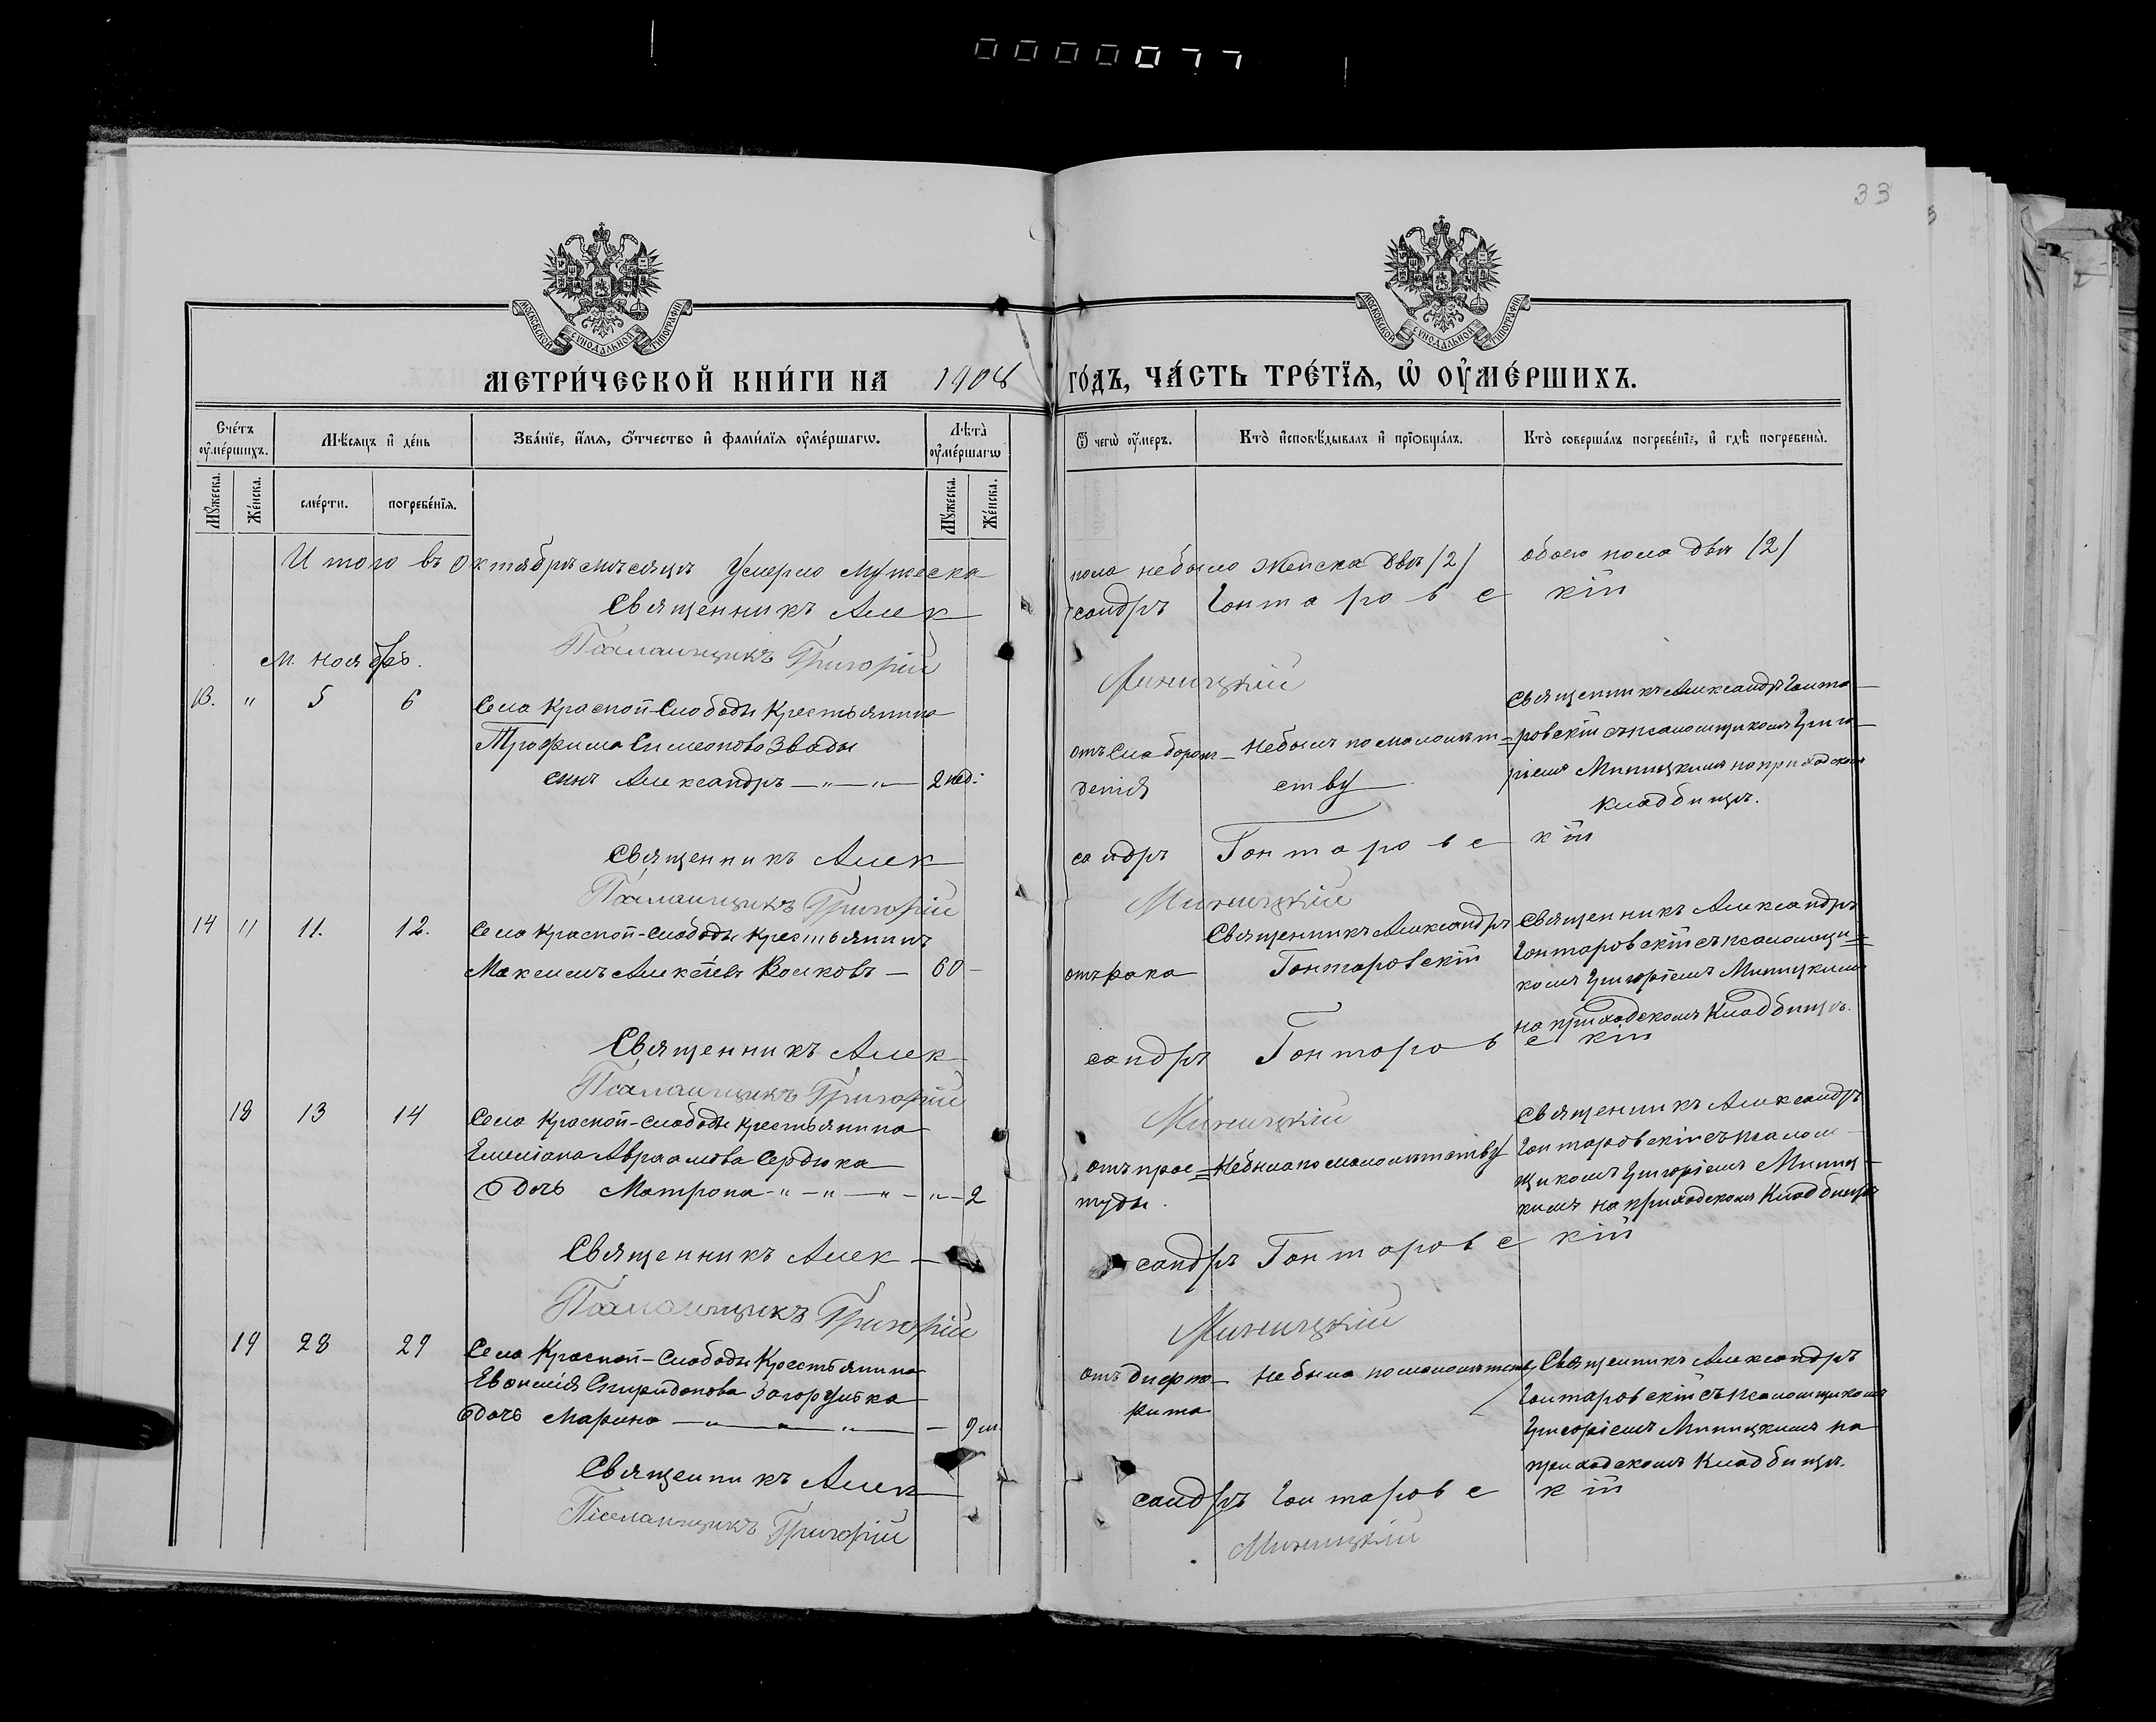 0000077
33
МОСКОВСКОЙ СѴНОДАЛЬНОЙ ТИПОГРАФІИ
МОСКОВСКОЙ СѴНОДАЛЬНОЙ ТИПОГРАФІИ
МЕТРИ́ЧЕСКОЙ КНИ́ГИ НА 1908 ГО́ДЪ, ЧА́СТЬ ТРЕ́ТЇѦ, Ѡ҆ ОУ҆МЕ́РШИХЪ.
Сче́тъ оу҆ме́ршихъ.
Мѣ́сяцъ и҆ де́нь
Зва́нїе, и҆́мѧ, ѻ҆́тчество и҆ фами́лїѧ оу҆ме́ршагѡ.
Лѣ́та̀ оу҆ме́ршагѡ
Ѿ чегѡ̀ оу҆́меръ.
Кто̀ и҆сповѣ́дывалъ и҆ прїѡбща́лъ.
Кто̀ соверша́лъ погребе́нїе, и҆ гдѣ̀ погребены̀.
Мꙋ́жеска.
Же́нска.
сме́рти.
погребе́нїѧ.
Мꙋ́жеска.
Же́нска.
Итого въ Октябрѣ мѣсяцѣ Умерло Мужеска пола небыло Женска двѣ /2/ обоего пола двѣ /2/
Священникъ Александръ Гонтаровскій
Псаломщикъ Григорій Миницкій
М. Ноябрь.
13. " 5 6
Села Красной-Слободы Крестьянина
Трофима Симеонова Звады
сынъ Александръ —"—"— 2 нед:
отъ Слаборож-
денія
Небылъ по малолѣт=
ству
Священникъ Александръ Гонта-
ровскій съ псаломщикомъ Григо-
ріемъ Миницкимъ на приходскомъ
кладбищѣ.
Священникъ Александръ Гонтаровскій
Псаломщикъ Григорій Миницкій
14 " 11. 12.
Села Красной-Слободы Крестьянинъ
Максимъ Алексѣевъ Волковъ — 60 —
отъ рака
Священникъ Александръ
Гонтаровскій
Священникъ Александръ
Гонтаровскій съ псаломщи=
комъ Григоріемъ Миницкимъ
на приходскомъ Кладбищѣ.
Священникъ Александръ Гонтаровскій
Псаломщикъ Григорій Миницкій
18 13 14
Села Красной-Слободы Крестьянина
Емиліана Авраамова Сердюка
дочь Матрона —"—"—"—"— 2
отъ прос=
туды.
Небыла по малолѣтству
Священникъ Александръ
Гонтаровскій съ псалом-
щикомъ Григоріемъ Миниц-
кимъ на приходскомъ Кладбищѣ
Священникъ Александръ Гонтаровскій
Псаломщикъ Григорій Миницкій
19 28 29
Села Красной-Слободы Крестьянина
Евфимія Спиридонова Загоруйка
дочь Марина —"—"—"— 9 м.
отъ дифте-
рита
Небыла по малолѣтству
Священникъ Александръ
Гонтаровскій съ псаломщикомъ
Григоріемъ Миницкимъ на
приходскомъ Кладбищѣ.
Священникъ Александръ Гонтаровскій
Псаломщикъ Григорій Миницкій